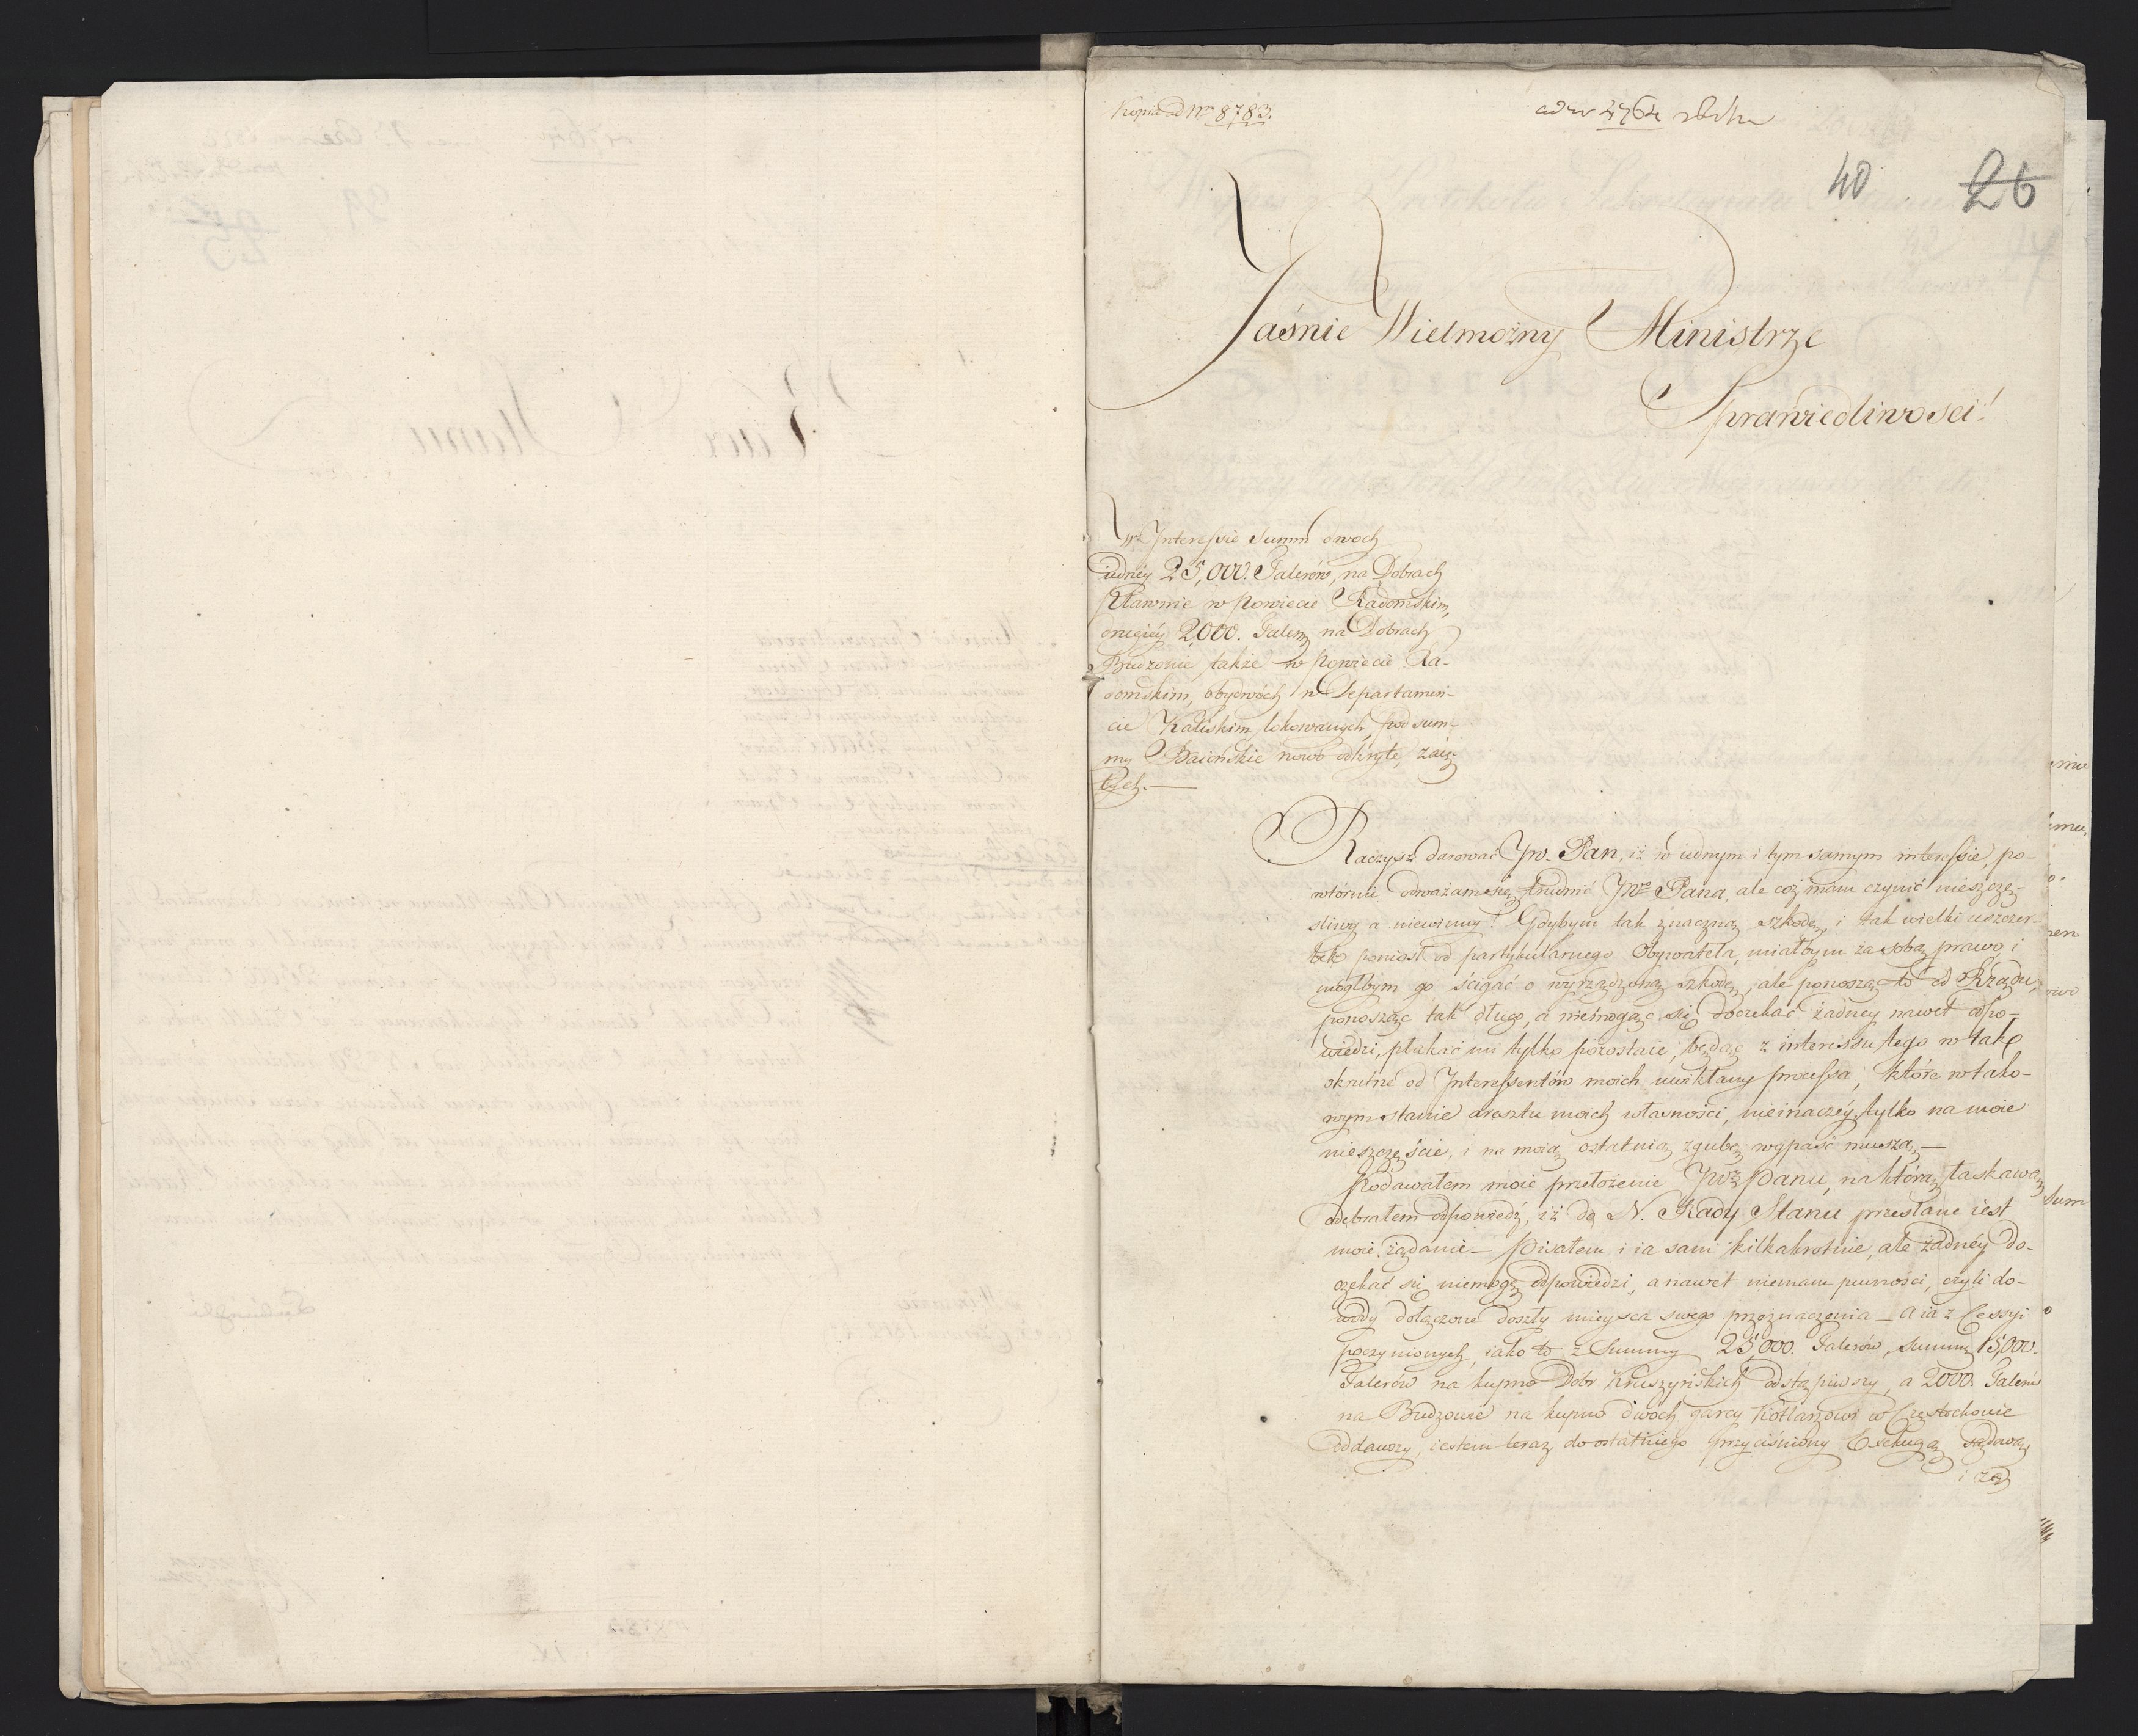 Kopia ad Nr 8783.
ad nr 2764
40 26
Jaśnie Wielmożny Ministrze
Sprawiedliwości!
W Interessie Summ dwóch
iedney 25,000. Talerów, na Dobrach
Pławnie w Powiecie Radomskim,
drugiéy 2,000. Taler: na Dobrach
Budzowie, także w Powiecie Ra-
domskim, obydwóch w Departamen-
cie Kaliskim lokowanych, pod sum-
my Baiońskie nowo odkryte, zaię-
tych.—
Raczysz darować JW. Pan, iż w iednym i tym samym interessie, po-
wtórnie odważam się trudnić JWo Pana, ale coż mam czynić nieszczę-
śliwy a niewinny? Gdybym tak znaczną szkodę, i tak wielki uszczer-
bek poniosł od partykularnego Obywatela, miałbym za sobą prawo, i
mogłbym go ścigać o wyrządzoną szkodę, ale ponosząc to od Rządu,
ponosząc tak długo, a niemogąc się doczekać żadney nawet odpo-
wiedzi, płakać mi tylko pozostaie, będąc z interessu tego w tak
okrutne od Interessentów moich uwikłany processa, które w tako-
wym stanie aresztu moich własności, nieinaczéy tylko na moie
nieszczęście, i na moią ostatnią zgubę wypaść muszą.—
Podawałem moie przełożenie JWo Panu, na które łaskawą
odebrałem odpowiedź, iż do N. Rady Stanu przesłane iest
moie żądanie — Pisałem i ia sam kilkakrotnie, ale żadnéy do-
czekać się niemogę odpowiedzi, a nawet niemam pewności, czyli do-
wody dołączone doszły mieysca swego przeznaczenia — A ia z Cessyi
poczynionych, iako to z Summy 25,000. Talerów, summę 15,000.
Talerów na kupno Dóbr Kruszyńskich odstąpiwszy, a 2000. Talerów
na Budzowie na kupno dwóch garcy Kotlarzowi w Częstochowie
oddawszy, iestem teraz do ostatniego przyciśniony Exekucyą sądową
i zaię